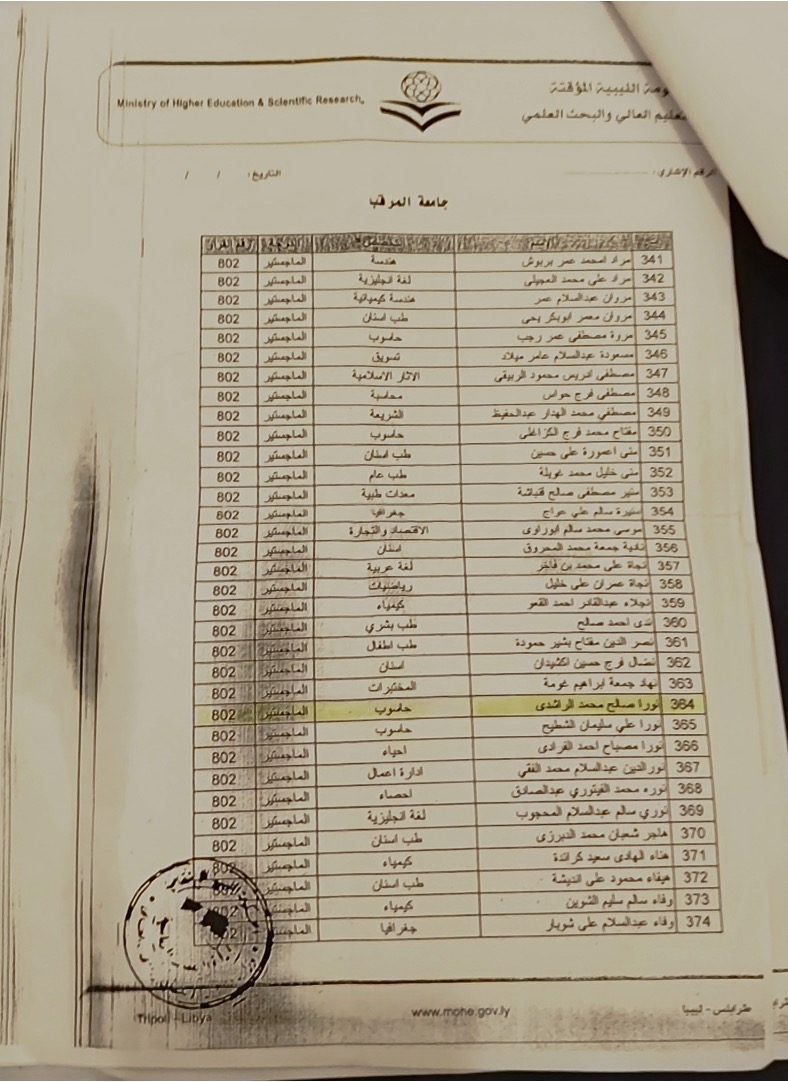 Ministry of Higher Education & Scientific Research
الليبية المؤقتة
التعليم العالي والبحث العلمي
الرقم الإشاري:
التاريخ: / /
جامعة المرقب
341 مراد امحمد عمر بربوش هندسة الماجستير 802
342 مراد على محمد العجيلى لغة انجليزية الماجستير 802
343 مروان عبدالسلام عمر هندسة كيميائية الماجستير 802
344 مروان معمر ابوبكر يحى طب اسنان الماجستير 802
345 مروة مصطفى عمر رجب حاسوب الماجستير 802
346 مسعودة عبدالسلام عامر ميلاد تسويق الماجستير 802
347 مصطفى ادريس محمود الربيقى الاثار الاسلامية الماجستير 802
348 مصطفى فرج حواس محاسبة الماجستير 802
349 مصطفي محمد الهدار عبدالحفيظ الشريعة الماجستير 802
350 مفتاح محمد فرج الكراغلى حاسوب الماجستير 802
351 منى اعمورة على حسين طب اسنان الماجستير 802
352 منى خليل محمد غويلة طب عام الماجستير 802
353 منير مصطفى صالح قنباشة معدات طبية الماجستير 802
354 منيرة سالم علي عراج جغرافيا الماجستير 802
355 موسى محمد سالم ابوراوى الاقتصاد والتجارة الماجستير 802
356 نادية جمعة محمد المحروق اسنان الماجستير 802
357 نجاة على محمد بن فاخر لغة عربية الماجستير 802
358 نجاة عمران على خليل رياضيات الماجستير 802
359 نجلاء عبدالقادر احمد القعو كيمياء الماجستير 802
360 ندى احمد صالح طب بشري الماجستير 802
361 نصر الدين مفتاح بشير حمودة طب اطفال الماجستير 802
362 نضال فرج حسين اكشيدان اسنان الماجستير 802
363 نهاد جمعة ابراهيم غومة المختبرات الماجستير 802
364 نورا صالح محمد الراشدى حاسوب الماجستير 802
365 نورا علي سليمان الشطيح حاسوب الماجستير 802
366 نورا مصباح احمد القرادى احياء الماجستير 802
367 نورالدين عبدالسلام محمد الفقي ادارة اعمال الماجستير 802
368 نوره محمد الفيتوري عبدالصادق احصاء الماجستير 802
369 نوري سالم عبدالسلام المحجوب لغة انجليزية الماجستير 802
370 هاجر شعبان محمد الدبرزى طب اسنان الماجستير 802
371 هناء الهادى سعيد كراندة كيمياء الماجستير 802
372 هيفاء محمود على انديشة طب اسنان الماجستير 802
373 وفاء سالم سليم الشوين كيمياء الماجستير 802
374 وفاء عبدالسلام على شوبار جغرافيا الماجستير 802
طرابلس - ليبيا www.mohe.gov.ly Tripoli - Libya